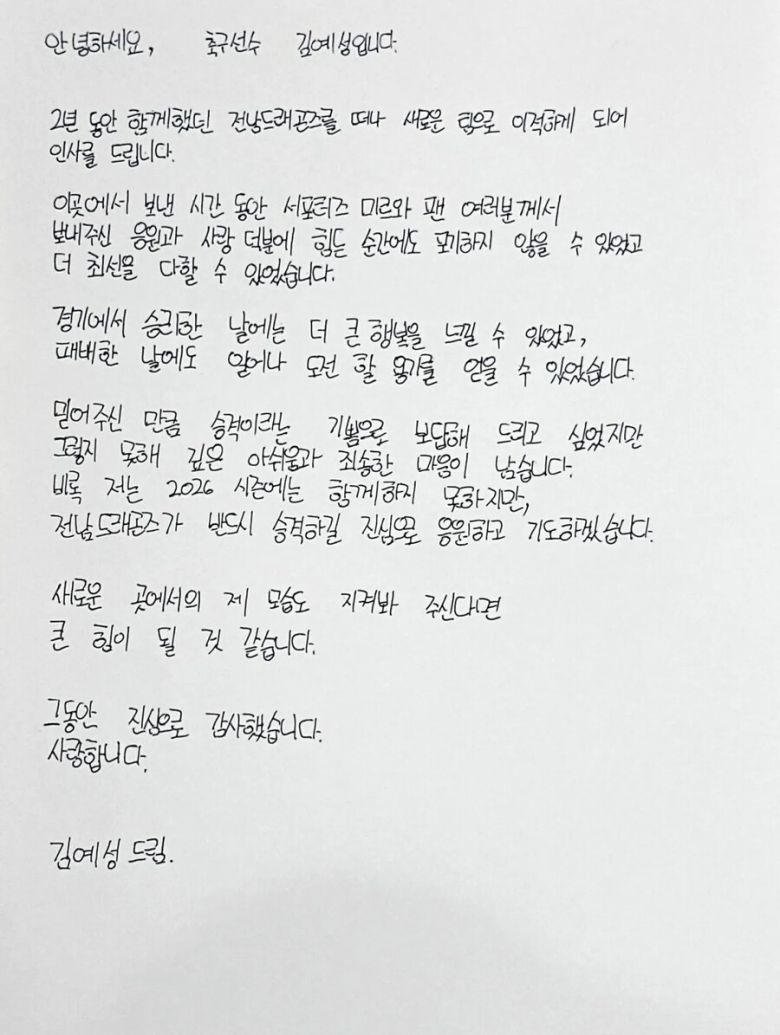 안녕하세요, 축구선수 김예성입니다.
2년 동안 함께했던 전남드래곤즈를 떠나 새로운 팀으로 이적하게 되어
인사를 드립니다.
이곳에서 보낸 시간 동안 서포터즈 미르와 팬 여러분께서
보내주신 응원과 사랑 덕분에 힘든 순간에도 포기하지 않을 수 있었고
더 최선을 다할 수 있었습니다.
경기에서 승리한 날에는 더 큰 행복을 느낄 수 있었고,
패배한 날에도 일어나 도전 할 용기를 얻을 수 있었습니다.
믿어주신 만큼 승격이라는 기쁨으로 보답해 드리고 싶었지만
그렇지 못해 깊은 아쉬움과 죄송한 마음이 남습니다.
비록 저는 2026 시즌에는 함께하지 못하지만,
전남드래곤즈가 반드시 승격하길 진심으로 응원하고 기도하겠습니다.
새로운 곳에서의 제 모습도 지켜봐 주신다면
큰 힘이 될 것 같습니다.
그동안 진심으로 감사했습니다.
사랑합니다.
김예성 드림.